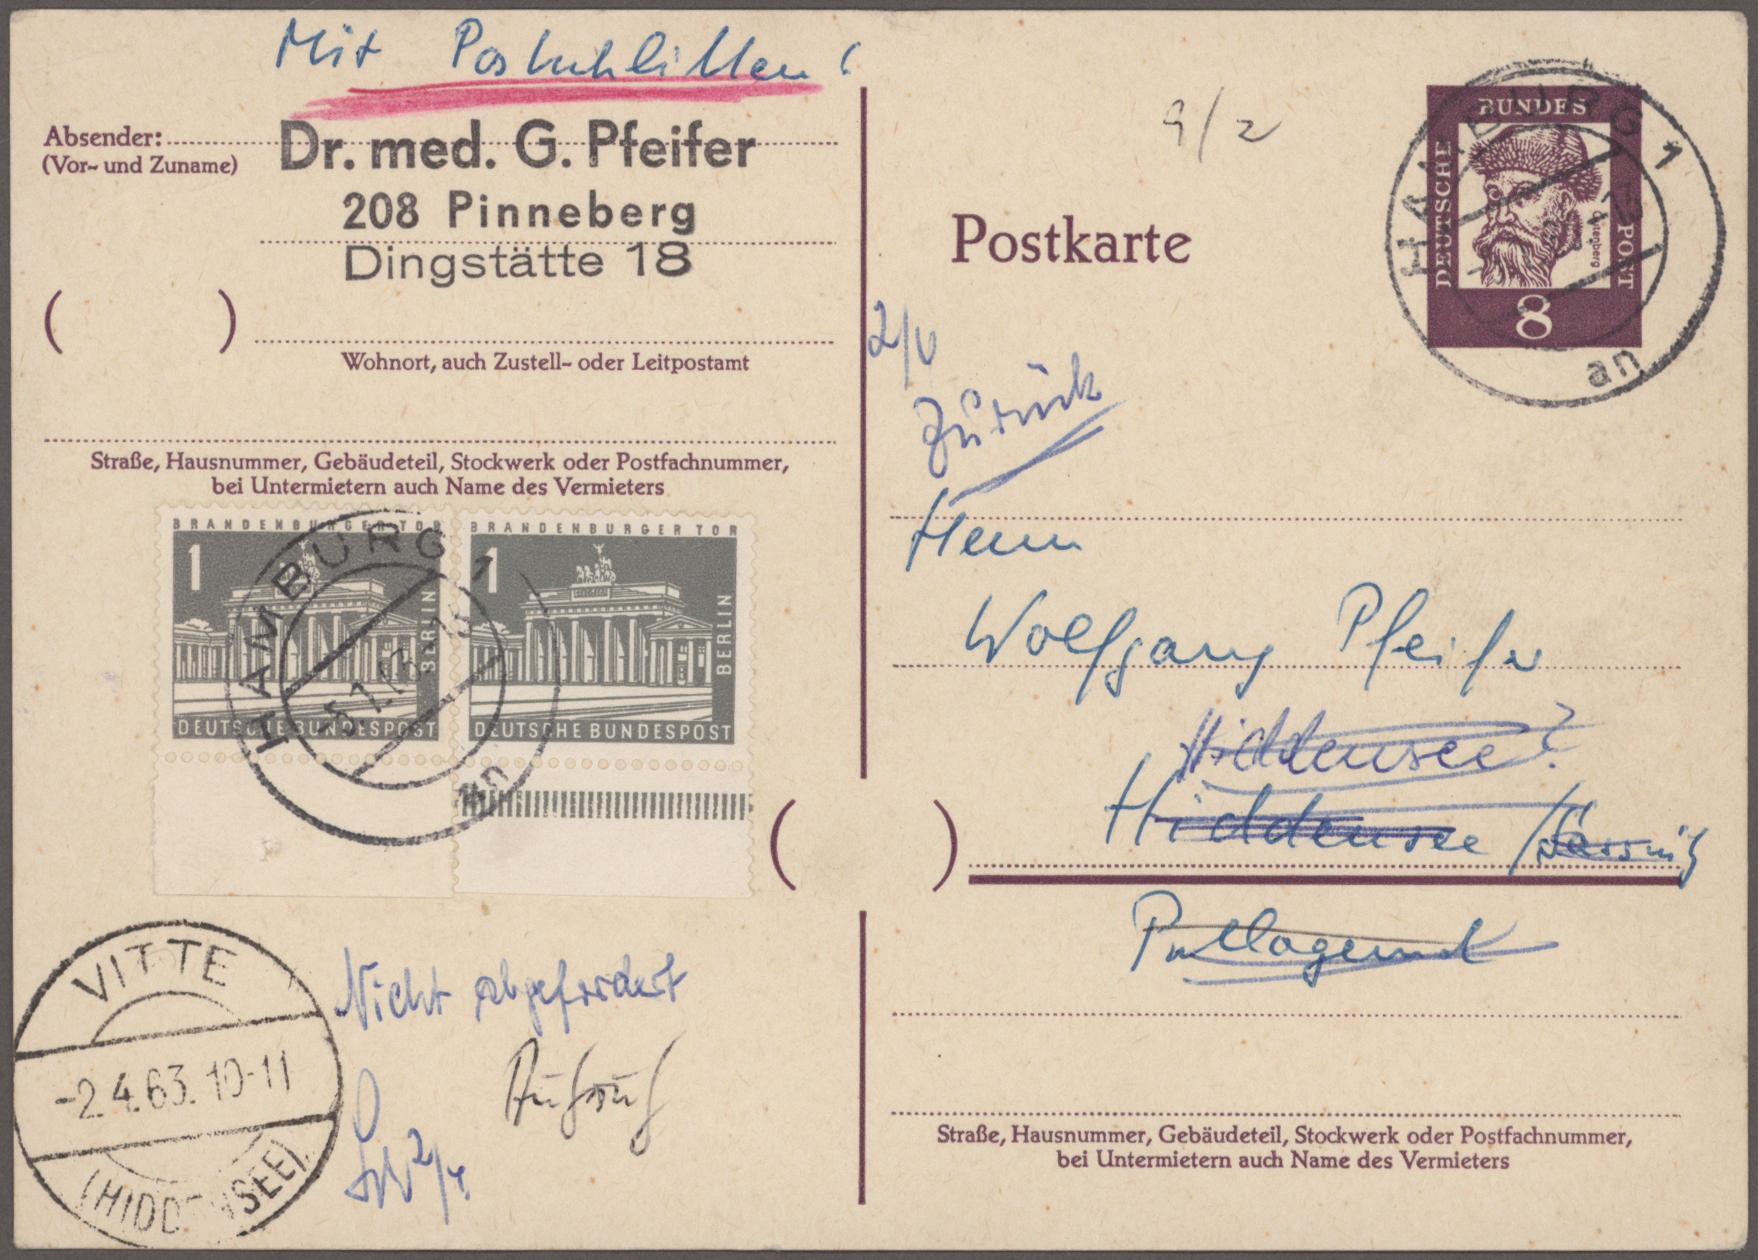 Mit Postschlitten!
Absender:
(Vor- und Zuname)
Dr. med. G. Pfeifer
208 Pinneberg
Dingstätte 18
( )
Wohnort, auch Zustell- oder Leitpostamt
Straße, Hausnummer, Gebäudeteil, Stockwerk oder Postfachnummer,
bei Untermietern auch Name des Vermieters
BRANDENBURGER TOR
1
BERLIN
DEUTSCHE BUNDESPOST
BRANDENBURGER TOR
1
BERLIN
DEUTSCHE BUNDESPOST
HAMBURG 1
-5.1.63
an
VITTE
-2.4.63.10-11
(HIDDENSEE)
Nicht abgefordert
2/4
9/2
BUNDES
DEUTSCHE
POST
Gutenberg
8
HAMBURG 1
an
Postkarte
Zurück
Herrn
Wolfgang Pfeifer
Hiddensee?
Hiddensee / Sassnitz
( )
Postlagernd
Straße, Hausnummer, Gebäudeteil, Stockwerk oder Postfachnummer,
bei Untermietern auch Name des Vermieters